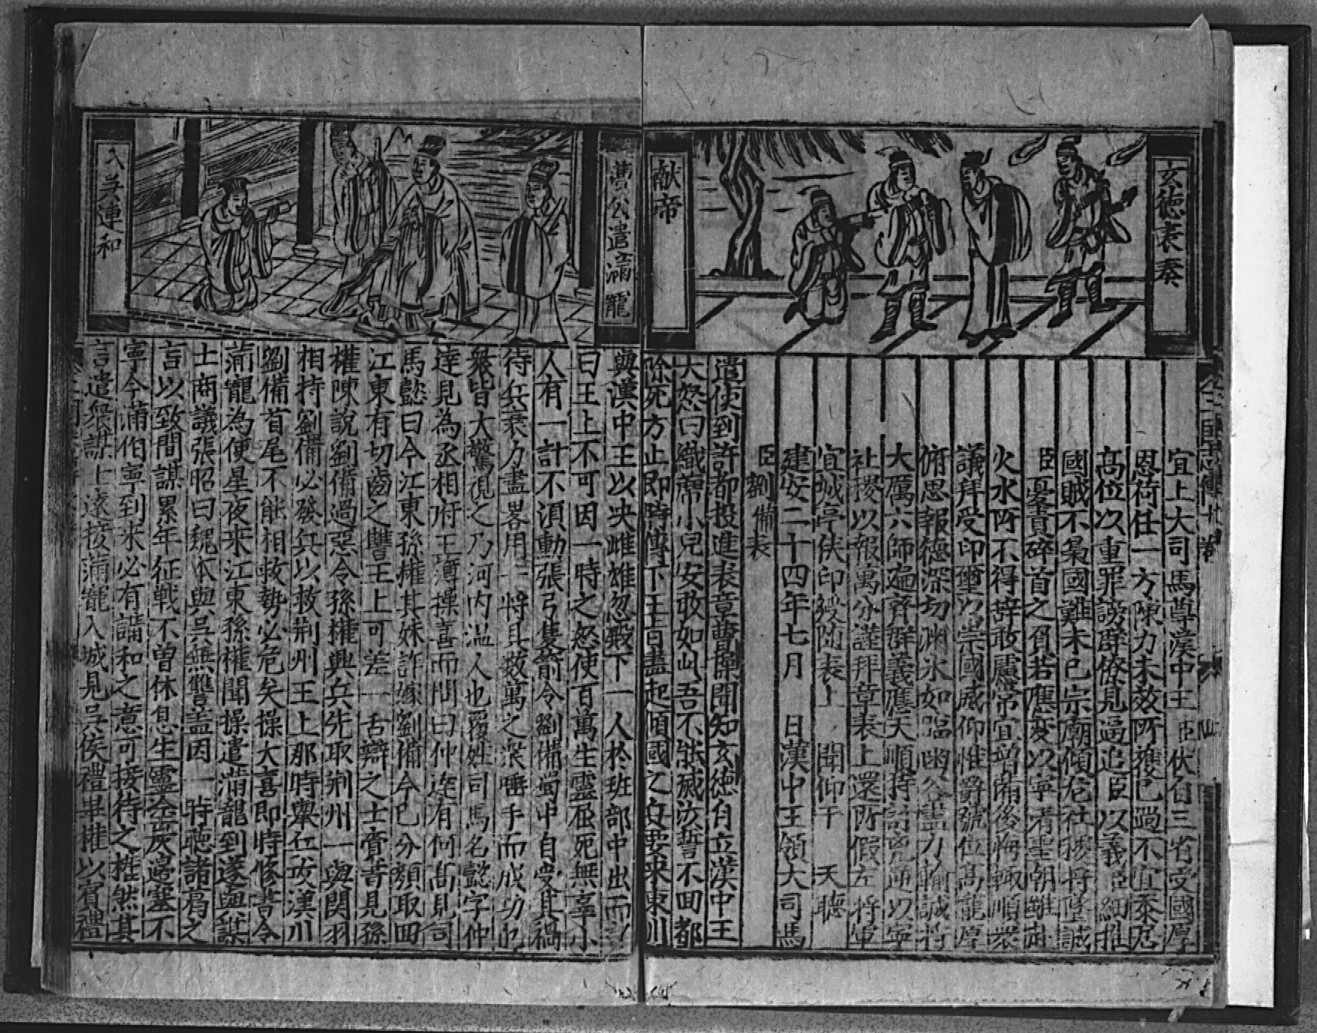 玄德表奏
献帝
宜上大司馬尊漢中王臣伏自三省受國厚
恩荷任一方陳力未效所獲已過不宜忝居
高位以重罪謗群僚見逼迫臣以義臣細推
國賊不梟國難未已宗廟傾危社稷將墜誠
臣憂責碎首之負若應変以寧靖聖朝雖赴
火水所不得辞敢慮常宜以崇後悔輒順衆
議拜受印璽以崇國威仰惟爵號位高寵厚
俯思報德深切淵氷如臨幽谷盡力輸誠将
大厲六師遍齊群義應天順持討兇逆以寧
社稷以報萬分謹拜章表上還所假左将軍
宜城亭侯印綬随表上 聞仰干 天聴
建安二十四年七月 日漢中王領大司馬
臣劉備表
遣使到許都投進表章曹操聞知玄德自立漢中王
大怒曰織席小兒安敢如此吾不能滅汝誓不回都
除死方止即時傳下王旨盡起傾國之兵要来東川
曹公遣滿寵
入吳連和
與漢中王以决雌雄忽殿下一人於班部中出而言
曰王上不可因一時之怒使百萬生靈屈死無辜小
人有一計不湏動張弓隻箭令劉備蜀中自受其禍
待兵衰力盡畧用一将具数萬之衆唾手而成功也
衆皆大驚視之乃河内温人也覆姓司馬名懿字仲
達見為丞相府主簿操喜而問曰仲達有何髙見司
馬懿曰今江東孫權其妹許嫁劉備今已分頚取回
江東有切齒之讐王上可差一舌辯之士賫書見孫
權陳說劉備過惡令孫權興兵先取荆州一與関羽
相持劉備必發兵以救荆州王上那時舉兵攻漢川
劉備首尾不能相救勢必危矣操大喜即時修書令
滿寵為使星夜来江東孫權聞操遣滿寵到遂與謀
士商議張昭曰魏本與吳無讐盖因一時聴諸葛之
言以致間諜累年征戰不曾休息生靈塗炭邉塞不
寧今滿伯寧到來必有講和之意可接待之權然其
言遣衆謀士遠接滿寵入城見吳侯禮畢權以賓禮